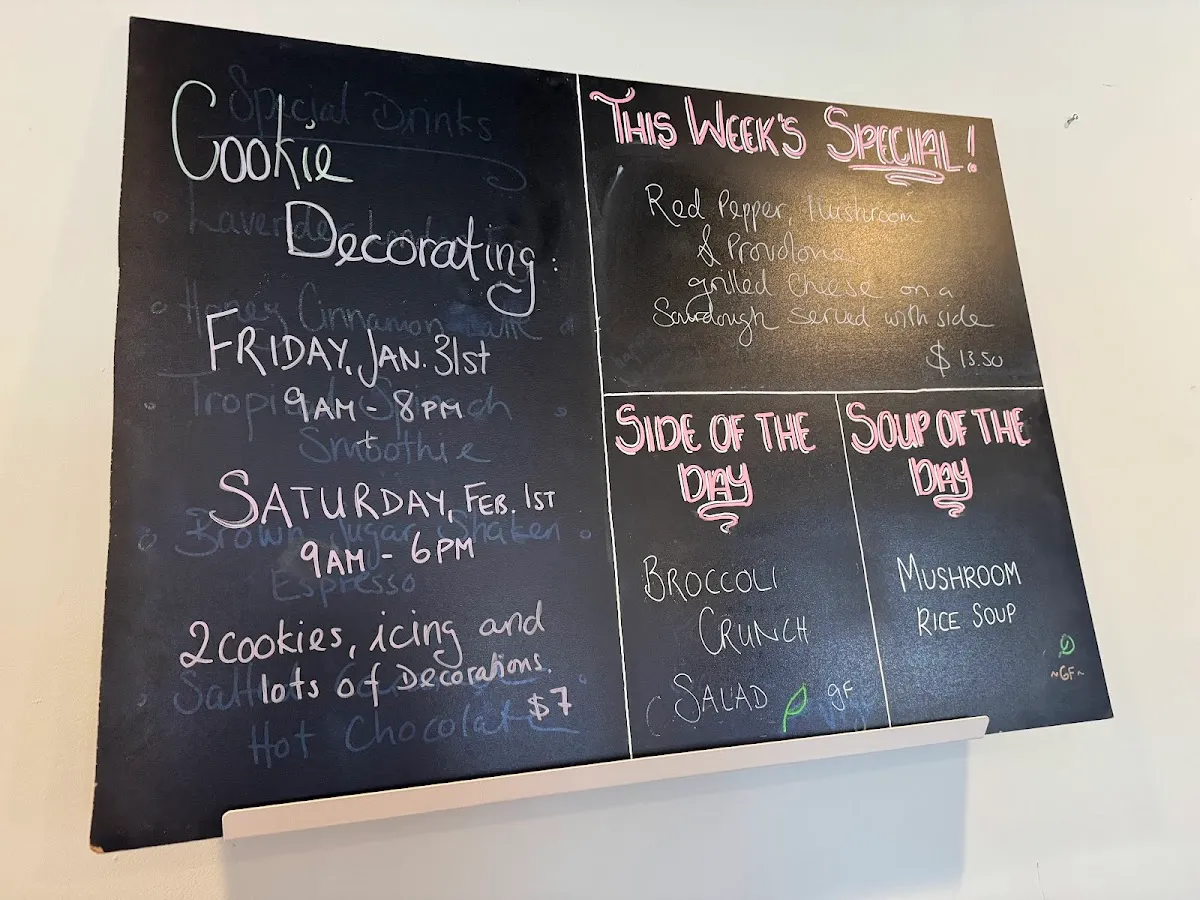 Cookie
Decorating:
FRIDAY, JAN. 31st
9AM - 8PM
+
SATURDAY, FEB. 1ST
9AM - 6PM
2 cookies, icing and
lots of Decorations.
$7
Special Drinks
Lavender
Honey Cinnamon
Tropical Spinach
Smoothie
Brown Sugar Shaken
Espresso
Salted
Hot Chocolate
THIS WEEK'S SPECIAL!
Red Pepper, Mushroom
& Provolone
grilled cheese on a
Sourdough served with side
$13.50
SIDE OF THE
DAY
BROCCOLI
CRUNCH
SALAD GF
SOUP OF THE
DAY
MUSHROOM
RICE SOUP
~GF~